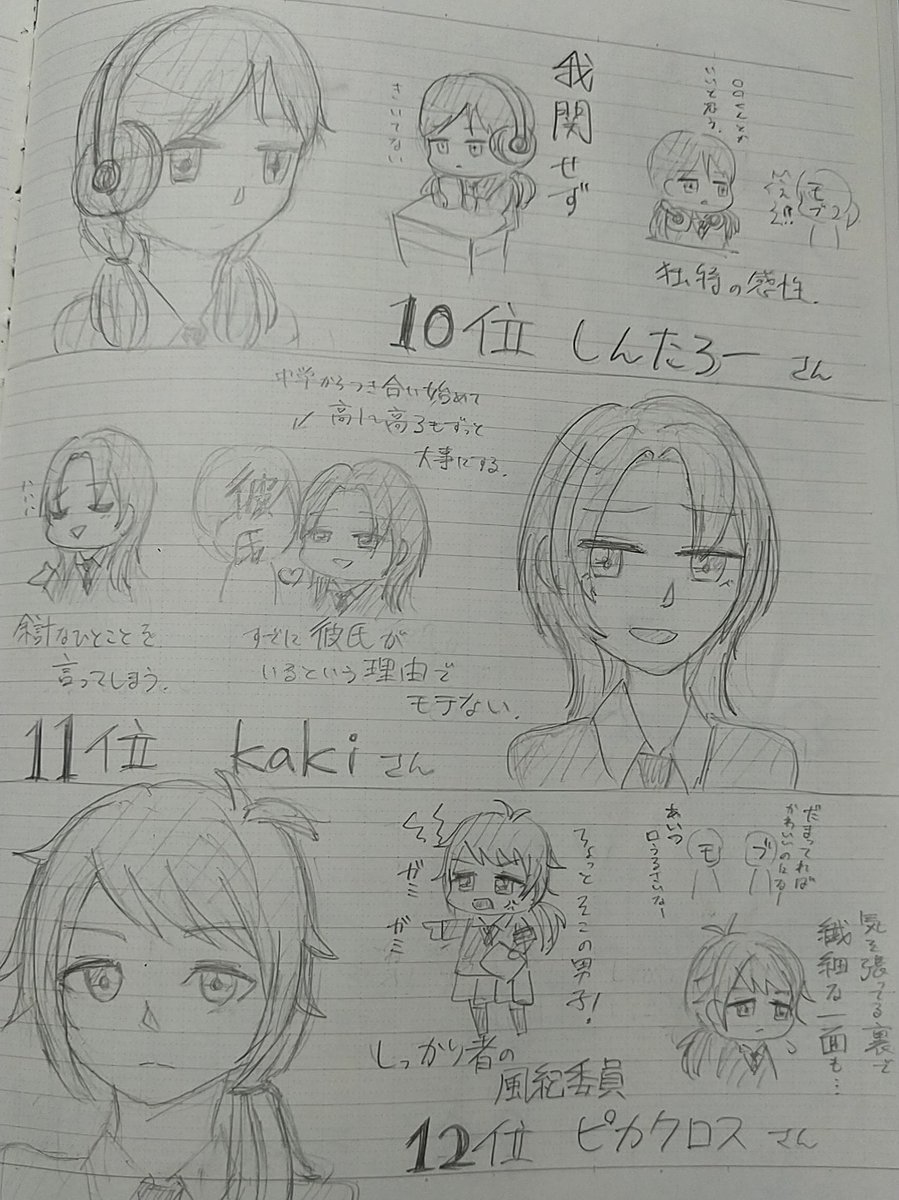 我関せず
きいてない
〇〇くんとか
いいと思う。
モブ
独特の感性。
10位 しんたろー さん
中学からつき合い始めて
大事にする。
彼氏
余計なひとことを
言ってしまう。
すでに彼氏が
いるという理由で
モテない。
11位 kaki さん
ガミ
ガミ
ちょっとそこの男子!
だまってれば
かわいいのになー
モ
ブ
あいつ
口うるさいなー
気を張ってる裏で
繊細な一面も…
しっかり者の
風紀委員
12位 ピカクロス さん